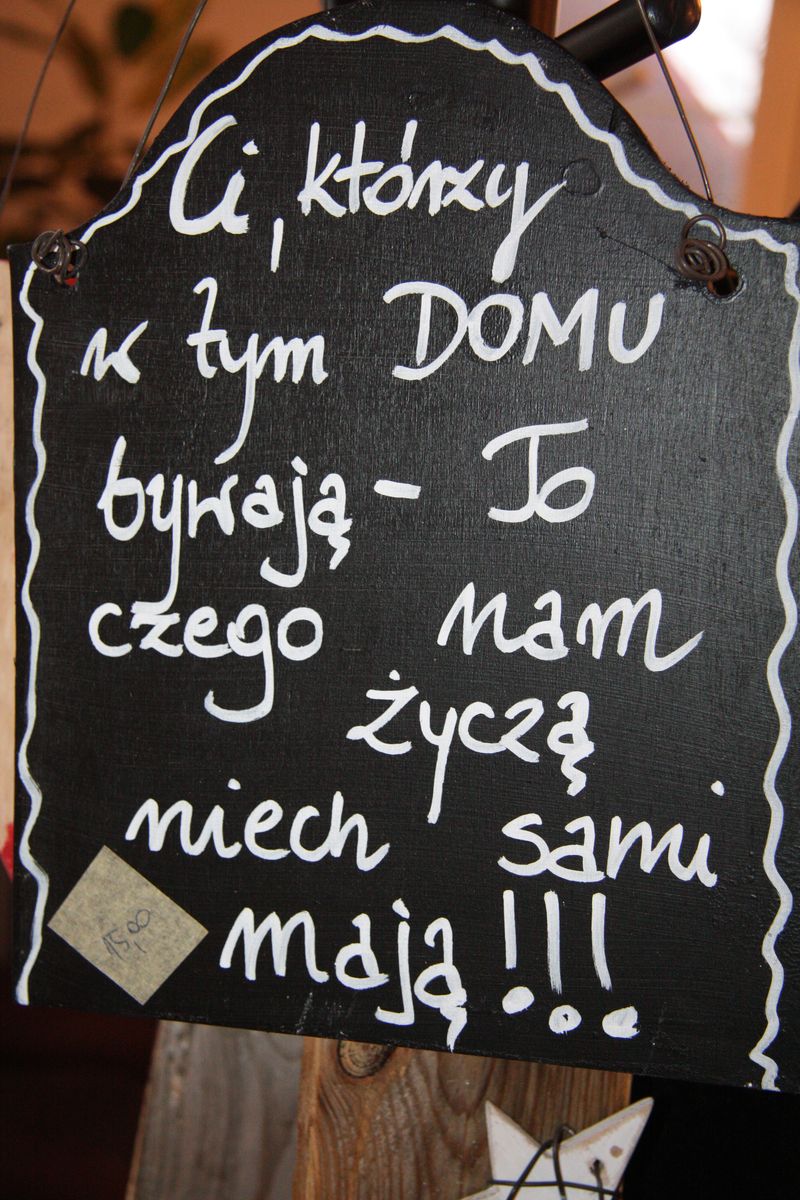 Ci, którzy
w tym DOMU
bywają - To
czego nam
życzą
niech sami
mają!!!
15,00